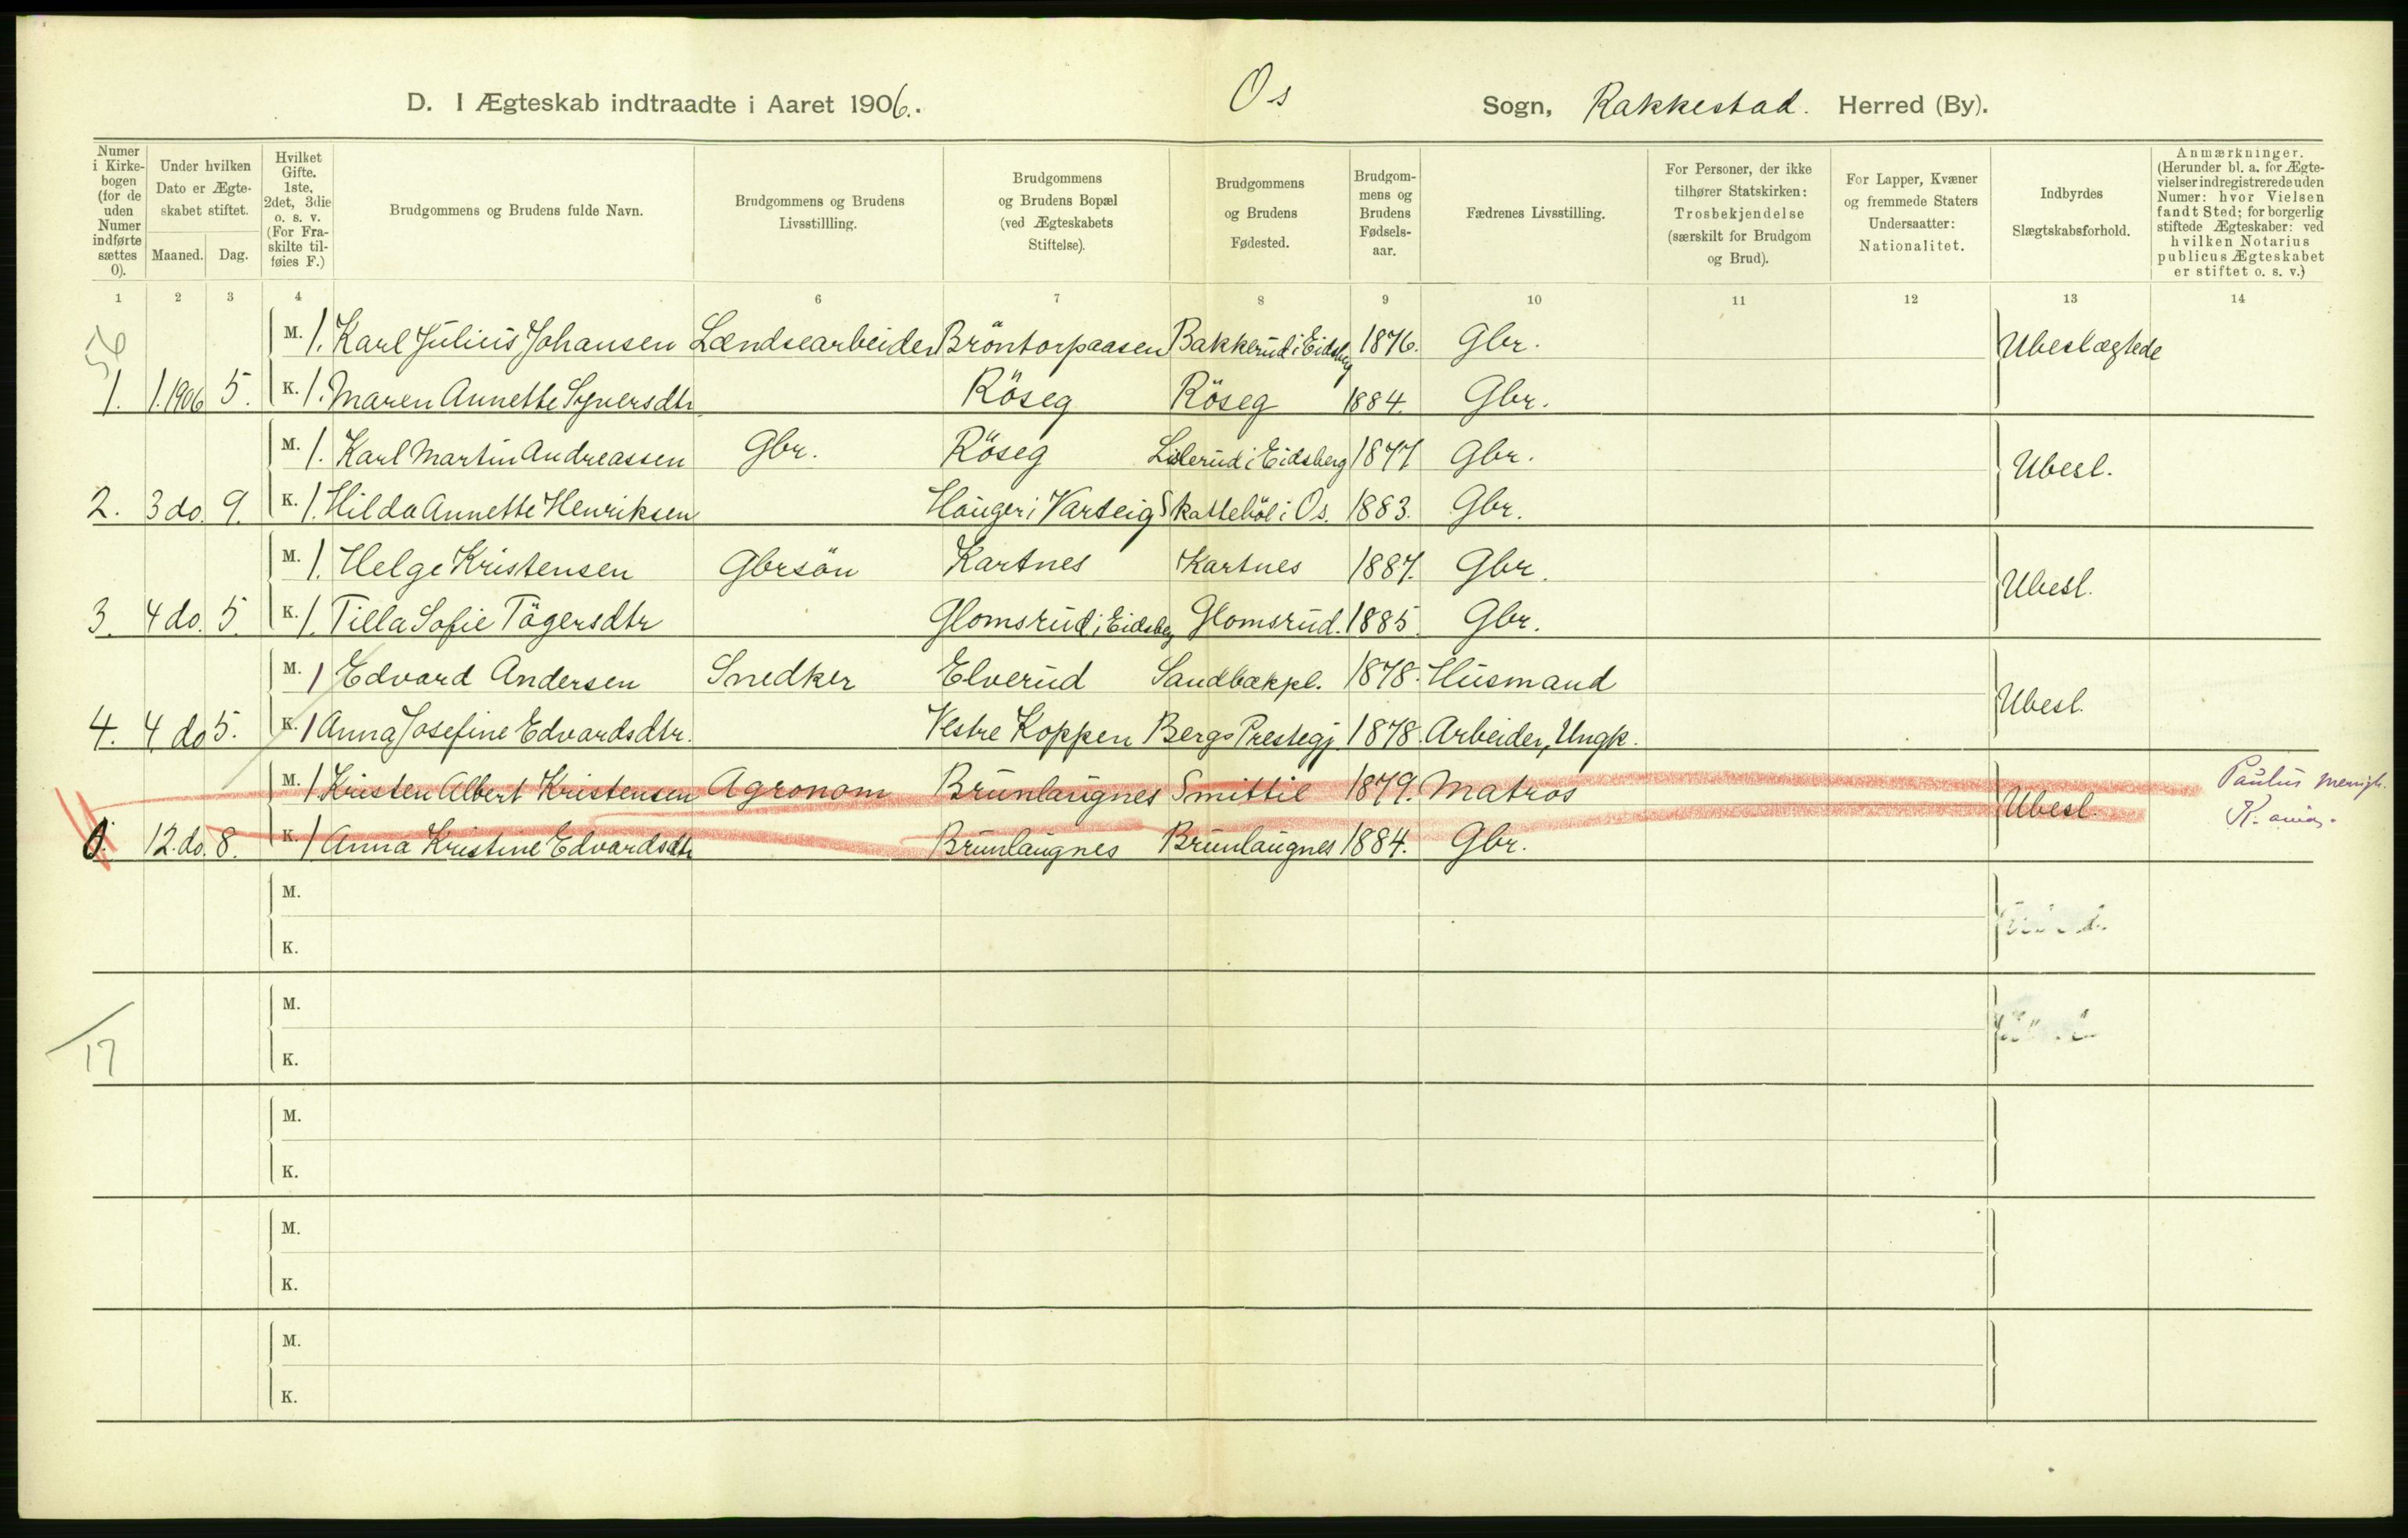 D. I Ægteskab indtraadte i Aaret 1906. Os Sogn, Rakkestad. Herred (By).
Numer i Kirkebogen (for de uden Numer indførte sættes 0).
Under hvilken Dato er Ægteskabet stiftet.
Maaned. Dag.
Hvilket Gifte. 1ste, 2det, 3die o. s. v. (For Fraskilte tilføies F.)
Brudgommens og Brudens fulde Navn.
Brudgommens og Brudens Livsstillling.
Brudgommens og Brudens Bopæl (ved Ægteskabets Stiftelse).
Brudgommens og Brudens Fødested.
Brudgommens og Brudens Fødselsaar.
Fædrenes Livsstilling.
For Personer, der ikke tilhører Statskirken: Trosbekjendelse (særskilt for Brudgom og Brud).
For Lapper, Kvæner og fremmede Staters Undersaatter: Nationalitet.
Indbyrdes Slægtskabsforhold.
Anmærkninger. (Herunder bl. a. for Ægtevielser indregistrerede uden Numer: hvor Vielsen fandt Sted; for borgerlig stiftede Ægteskaber: ved hvilken Notarius publicus Ægteskabet er stiftet o. s. v.)
1 2 3 4 6 7 8 9 10 11 12 13 14
56
M. 1. Karl Julius Johansen Lændsearbeider Bröntorpaasen Bakkerud i Eidsberg 1876. Gbr. Ubeslægtede
1. 1.1906 5. K. 1. Maren Annette Syversdtr Röseg Röseg 1884. Gbr.
M. 1. Karl Martin Andreassen Gbr. Röseg Lislerud i Eidsberg 1877 Gbr. Ubesl.
2. 3 do. 9. K. 1. Hilda Annette Henriksen Hauger i Varteig Skattebøl i Os. 1883. Gbr.
M. 1. Helge Kristensen Gbrsön Kartnes Kartnes 1887. Gbr. Ubesl.
3. 4 do. 5. K. 1. Tilla Sofie Tögersdtr Glomsrud i Eidsberg Glomsrud. 1885. Gbr.
M. 1 Edvard Andersen Snedker Elverud Sandbækpl. 1878. Husmand Ubesl.
4. 4 do 5. K. 1 Anna Josefine Edvardsdtr. Vestre Koppen Bergs Prestegj. 1878. Arbeider, Ungk.
M. 1. Kristen Albert Kristensen Agronom Brunlaugnes Smittil 1879. Matros Ubesl. Paulus menigh.
0. 12. do. 8. K. 1 Anna Kristine Edvardsdtr Brunlaugnes Brunlaugnes 1884. Gbr. K. ania.
M.
K.
M.
17 K.
M.
K.
M.
K.
M.
K.